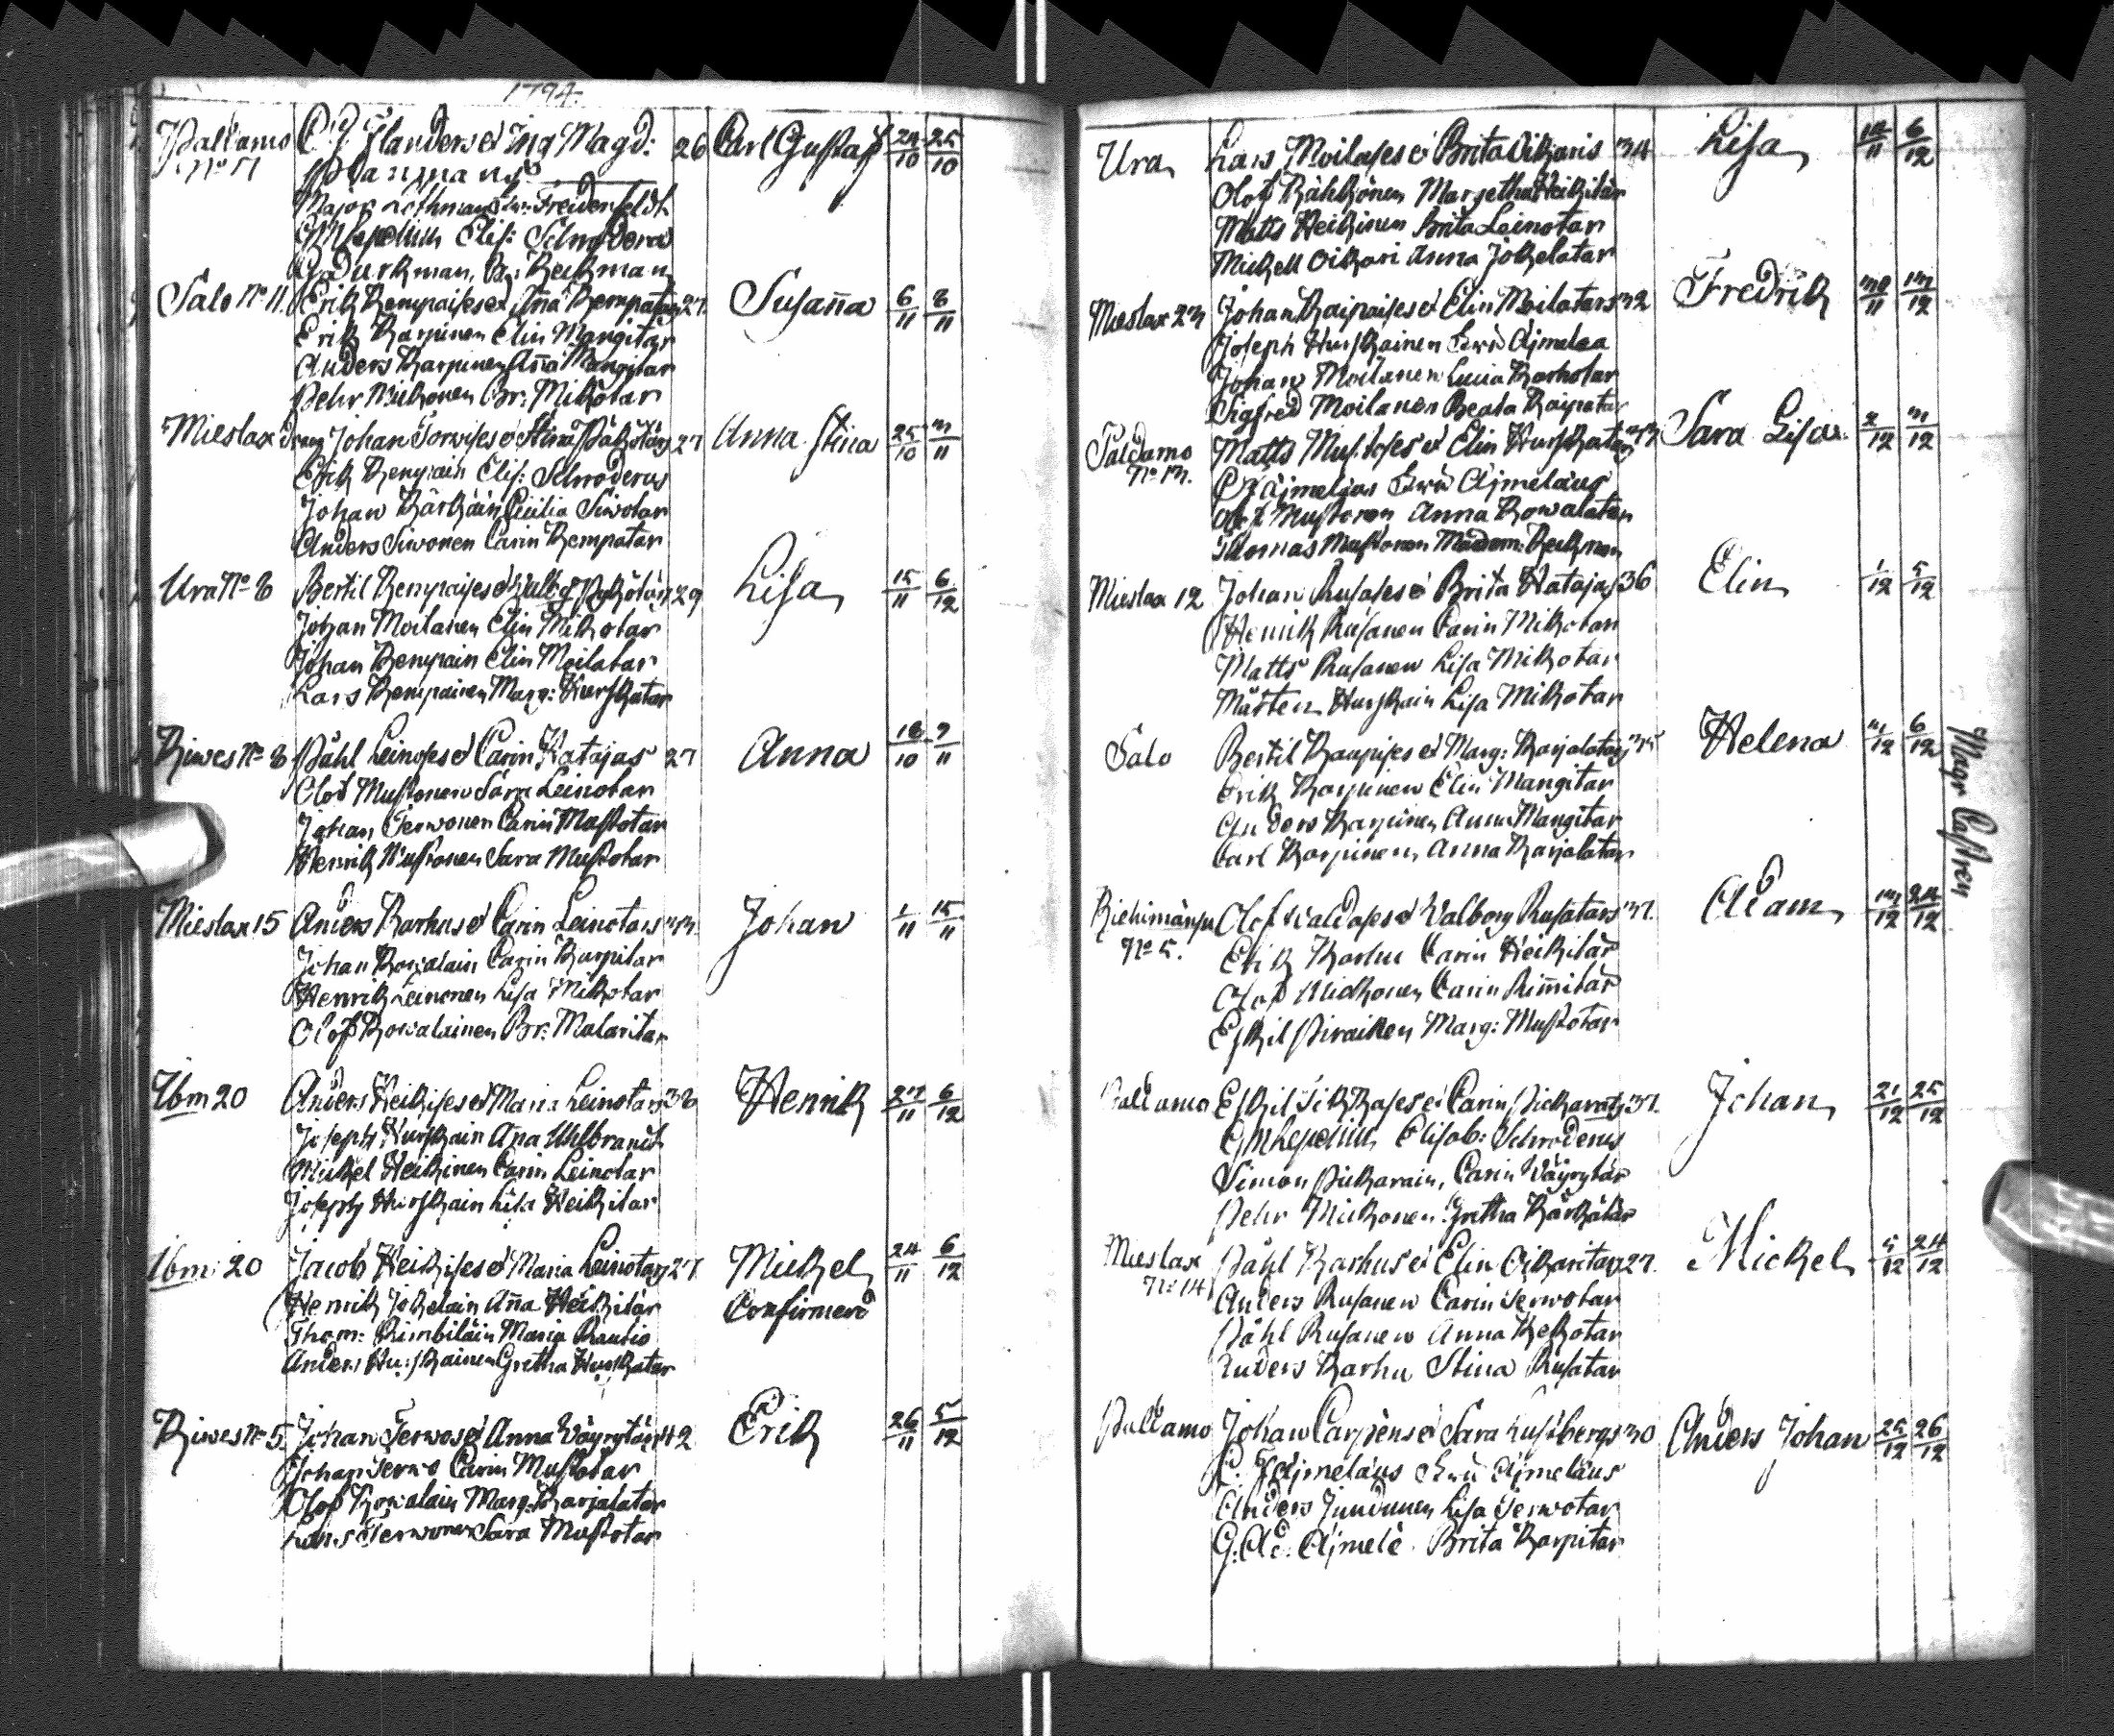 1794.
Paldamo C. J. Flanders & Ing Magd: 26 Carl Gustaf 24/10 25/10
Major Lithman Freidenfeldt
Elis: Schroderus
Salo No 11. Erik Kempaises & Aña Kempatars 27. Susaña 6/11 8/11
Erik Karpinen Elin Mangitar
Anders Karpinen Aña Mangitar
Pehr Mickonen Br: Mikotar
Mieslax Johan Torwises & Stina 27 Anna Stina 25/10 /11
Erik Kempain Elis: Schroderus
Johan Kärkäin Cicilia Siwotar
Anders Siwonen Carin Kempatar
Ura No 8 Bertil Kempaises & 29 Lisa 15/11 6/12
Johan Moilanen Elin Mikotar
Johan Kempain Elin Moilatar
Lars Kempainen Marg: Hurskatar
Kiwes No 8 Påhl Leinoses & Carin Katajas 27 Anna 18/10 9/11
Olof Mustonen Sara Leinotar
Johan Terwonen Carin Mustotar
Henrik Mustonen Sara Mustotar
Mieslax 15 Anders Karhus & Carin Leinotars Johan 1/11 15/11
Johan Kowalain Carin Karpitar
Henrik Leinonen Lisa Mikotar
Olof Kowalainen Br: Malaritar
Ibm 20 Anders Heikises & Maria Leinotars 38 Henrik 27/11 6/12
Joseph Hurskain Aña Uhlbrandt
Mickel Heikinen Carin Leinotar
Joseph Hurskain Lisa Heikitar
Ibm: 20 Jacob Heikises & Maria Leinotars 27. Mickel 24/11 6/12
Henrik Jokelain Aña Heikitär Confirmerd
Thom: Kimbiläin Maria Rautio
Anders Hurskainen Gretha Hurskatar
Kiwes No 5. Johan Terwos & Anna Wäyrytärs 42 Erik 26/11 5/12
Johan Terwo Carin Mustotar
Olof Kowalain Marg: Karjalatar
Lars Terwonen Sara Mustotar
Ura Lars Moilases & Brita Oikaris 34 Lisa /11 6/12
Olof Kähkönen Margetha Heikitär
Matts Heikinen Brita Leinotar
Mickell Oikari Anna Jokelatar
Mieslax 23 Johan Kaipaises & Elin Moilatars 32 Fredrik /11 /12
Joseph Hurskainen Ajmelaa
Johan Moilanen Lucia Karhotar
Sigfred Moilanen Beata Kaipatar
Paldamo Matts Elin Hurskatars Sara Lisa 2/12 /12
No 13. Ajmeläus
Olof Mustonen Anna Kowalatar
Thomas Mustonen
Mieslax 12 Johan Rusases & Brita Hatajas 36 Elin 1/12 5/12
Henrik Rusanen Carin Mikotar
Matts Rusanen Lisa Mikotar
Mårten Hurskain Lisa Mikotar
Salo Bertil Kaupises & Marg: Karjalatars Helena /12 6/12
Erik Karpinen Elin Mangitar
Anders Karpinen Anna Mangitar
Carl Karpinen, Anna Karjalatar
Magr Castren
Kiehimänju Olof Waldases & Valborg Rusatars 37. Adam 24/12
No 5. Erik Karhu Carin Heikitär
Olof Mickonen Carin Kimitär
Eskil Piraiken Marg: Mustotar
Paldamo Eskil Sikkases & Carin 37. Johan 21/12 25/12
Elisab: Schroderus
Simon Pickarain, Carin Wäyrytär
Pehr Mickonen Gretha Kärkätär
Mieslax Påhl Karhus & Elin Oikaritars 27. Mickel 5/12 24/12
No: 14 Anders Rusanen Carin Terwotar
Påhl Rusanen Anna Kekotar
Anders Karhu Stina Rusatar
Paldamo Johan Carpens & Sara Lustbergs 30 Anders Johan 25/12 26/12
Ajmeläus Ajmeläus
Anders Jundunen Lisa Terwotar
G. Ad: Ajmele Brita Karpitar